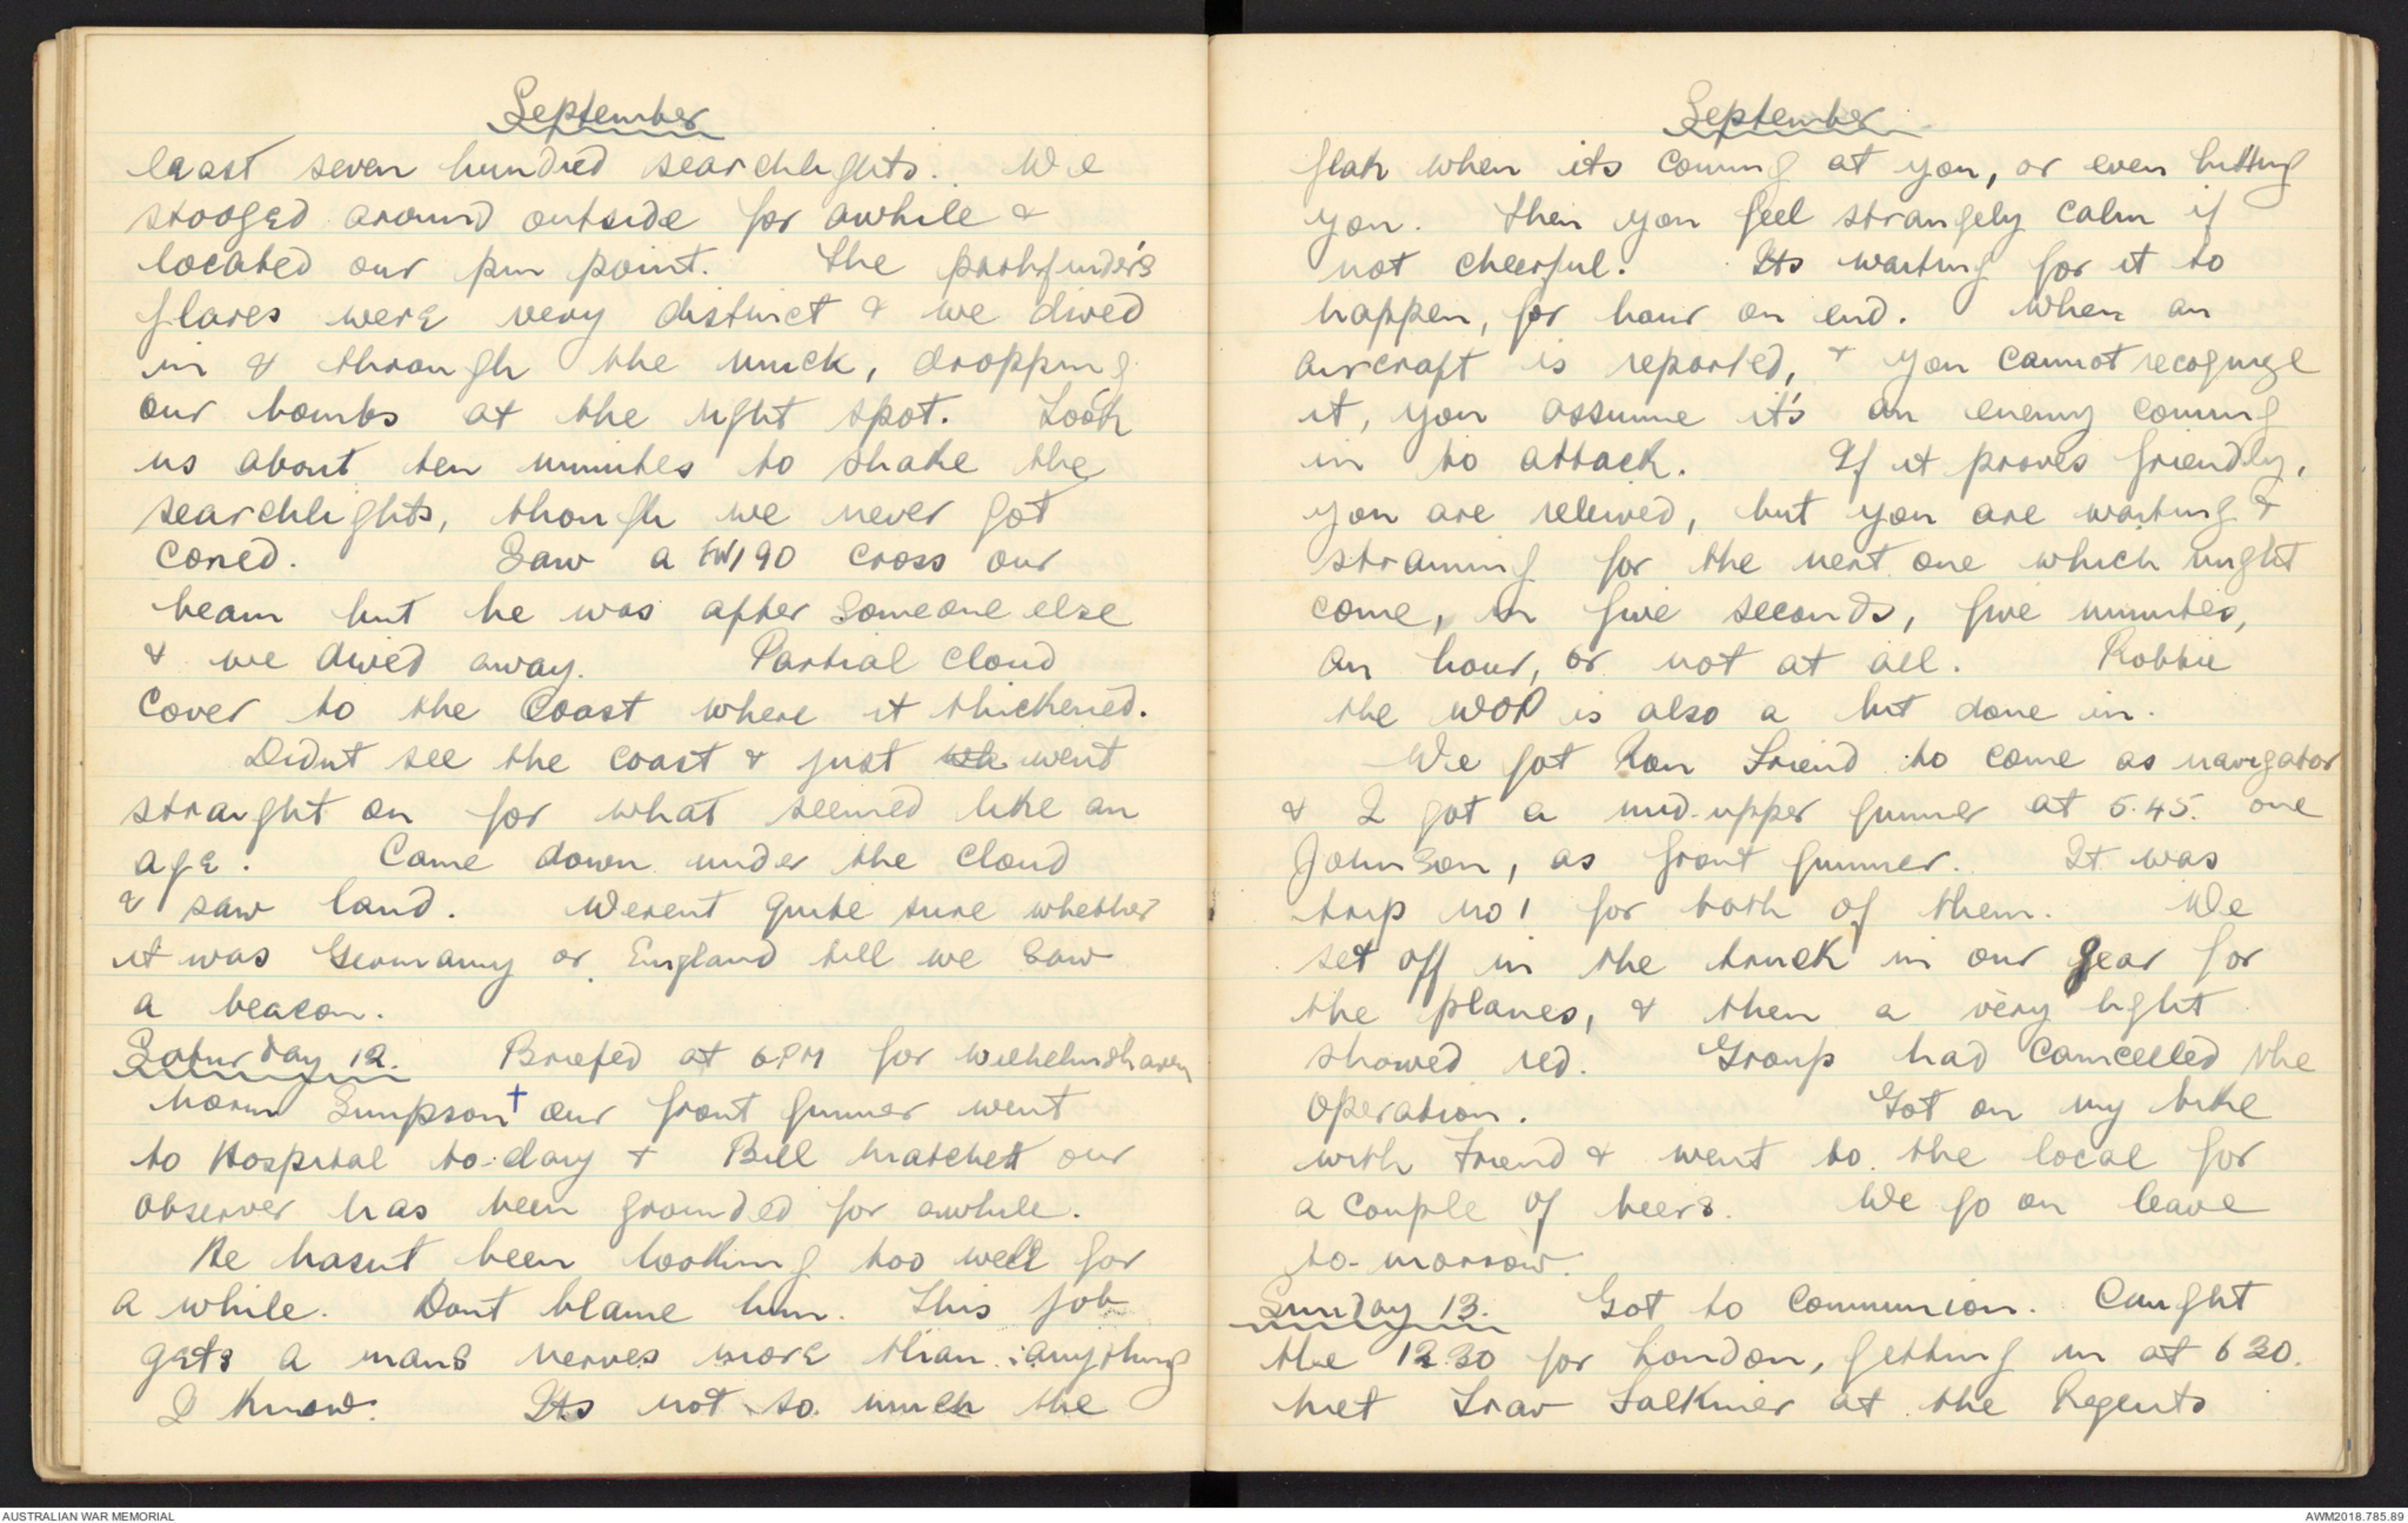 September
least seven hundred searchlights. We
stooged around outside for awhile &
located our pin point. The pathfinder's
flares were very distinct & we dived
in & through the muck, dropping
our bombs at the right spot. Took
us about ten minutes to shake the
searchlights, though we never got
coned. Saw a FW190 cross our
beam but he was after someone else
& we dived away. Partial cloud
cover to the coast where it thickened.
Didnt see the coast & just wh went
straight on for what seemed like an
age. Came down under the cloud
& saw land. Werent quite sure whether
it was Germany or England till we saw
a beacon.
Saturday 12. Briefed at 6PM for Wilhelmshaven
Norm Simpson† our front gunner went
to Hospital to-day & Bill Matchett our
observer has been grounded for awhile.
He hasnt been looking too well for
a while. Dont blame him. This job
gets a mans nerves more than anything
I know. Its not so much the
September
flak when its coming at you, or even hitting
you. Then you feel strangely calm if
not cheerful. Its waiting for it to
happen, for hour on end. When an
aircraft is reported, & you cannot recognize
it, you assume it's an enemy coming
in to attack. If it proves friendly,
you are relieved, but you are waiting &
straining for the next one which might
come, in five seconds, five minutes,
an hour, or not at all. Robbie
the WOP is also a bit done in.
We got Ron Friend to come as navigator
& I got a mid-upper gunner at 5.45. one
Johnson, as front gunner. It was
trip no 1 for both of them. We
set off in the truck in our gear for
the planes, & then a very light
showed red. Group had cancelled the
operation. Got on my bike
with Friend & went to the local for
a couple of beers. We go on leave
to-morrow.
Sunday 13. Got to Communion. Caught
the 12.30 for London, getting in at 6 30.
Met Trav at the Regents
AUSTRALIAN WAR MEMORIAL
AWM2018.785.89